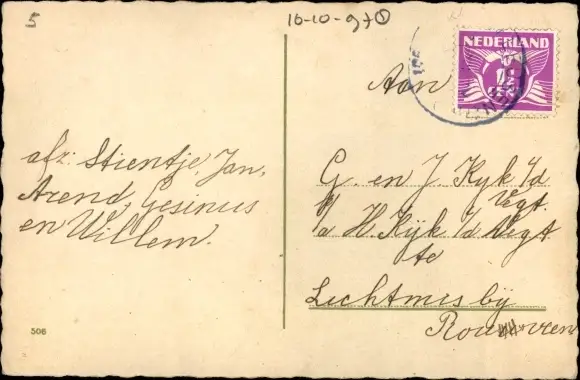 5
16-10-97
NEDERLAND
Aan
afz. Stientje, Jan,
Arend, Gesinus
en Willem.
G. en J Kyk i/d
Vegt.
p/a H. Kijk i/d Vegt
te
Lichtmis bij
Rouveen
506